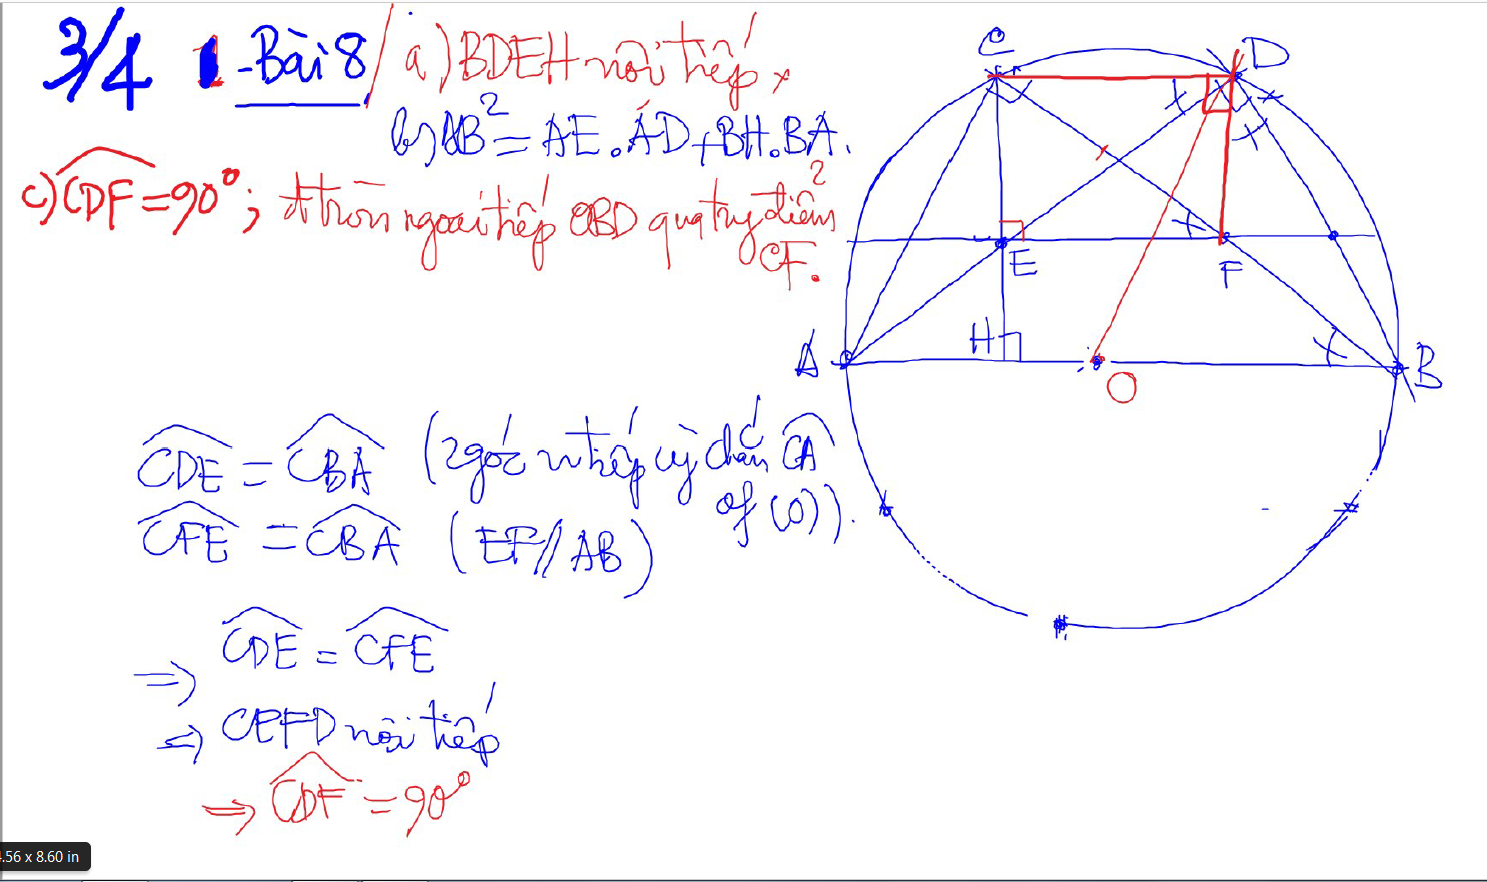 3/4 1-Bài 8/ a) BDEH nội tiếp
b) AB² = AE.AD + BH.BA.
c) CDF = 90°; đtròn ngoại tiếp OBD qua trung điểm
CF.
C
D
E
F
A
H
O
B
CDE = CBA (2 góc n tiếp cùng chắn CA
of (O)).
CFE = CBA (EF//AB)
⇒ CDE = CFE
⇒ CEFD nội tiếp
⇒ CDF = 90°
.56 x 8.60 in